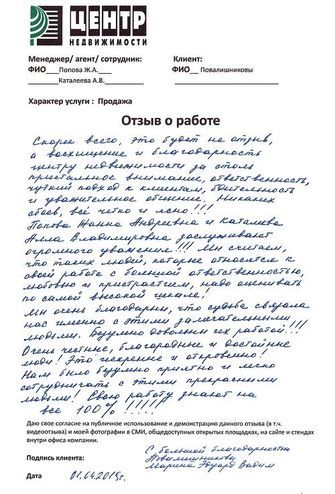 ЦЕНТР
НЕДВИЖИМОСТИ
Менеджер/ агент/ сотрудник:
ФИО___Попова Ж.А.____
______Каталеева А.В.______
Клиент:
ФИО__ Повалишниковы
Характер услуги : Продажа
Отзыв о работе
Скорее всего, это будет не отзыв,
а восхищение и благодарность
центру недвижимости за столь
пристальное внимание, ответственность,
чуткий подход к клиентам, бдительность
и уважительное общение. Никаких
сбоев, всё чётко и ясно!!!
Попова Жанна Андреевна и Каталеева
Алла Владимировна заслуживают
огромного уважения!!! Мы считаем,
что таких людей, которые относятся к
своей работе с большой ответственностью,
любовью и пристрастием, надо оценивать
по самой высокой шкале!
Мы очень благодарны, что судьба связала
нас именно с этими замечательными
людьми. Безумно довольны их работой!!!
Очень честные, благородные и достойные
люди! Это искренне и откровенно!
Нам было безумно приятно и легко
сотрудничать с этими прекрасными
людьми! Свою работу знают на
все 100%!!!!
Даю свое согласие на публичное использование и демонстрацию данного отзыва (в т.ч.
видеоотзыва) и моей фотографии в СМИ, общедоступных открытых площадках, на сайте и стендах
внутри офиса компании.
Подпись клиента:
С большой благодарностью
Повалишниковы
Марина Эдуард Вадим
Дата 01.04.2015г.